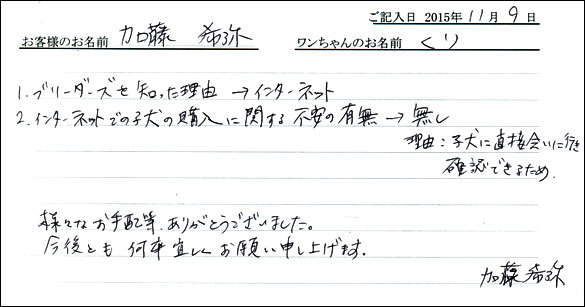 ご記入日 2015年11月9日
お客様のお名前 加藤 希弥 ワンちゃんのお名前 くり
1. ブリーダーズを知った理由 → インターネット
2. インターネットでの子犬の購入に関する不安の有無 → 無し
理由：子犬に直接会いに行き
確認できるため.
様々なお手配等、ありがとうございました。
今後とも何卒宜しくお願い申し上げます.
加藤希弥